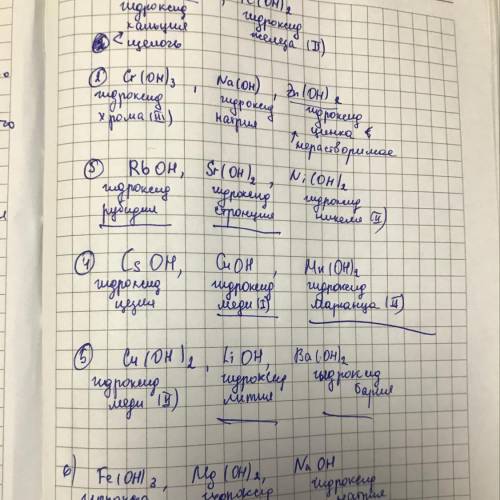 гидроксид гидроксид
кальция железа (II)
щелочь
② Cr(OH)3, Na(OH), Zn(OH)2
гидроксид гидроксид гидроксид
хрома (III) натрия цинка
↑ нерастворимое
③ RbOH, Sr(OH)2, Ni(OH)2
гидроксид гидроксид гидроксид
рубидия стронция никеля (II)
④ CsOH, CuOH, Mn(OH)2
гидроксид гидроксид гидроксид
цезия меди (I) марганца (II)
⑤ Cu(OH)2, LiOH, Ba(OH)2
гидроксид гидроксид гидроксид
меди (II) лития бария
6) Fe(OH)3, Mg(OH)2, NaOH
гидроксид
натрия